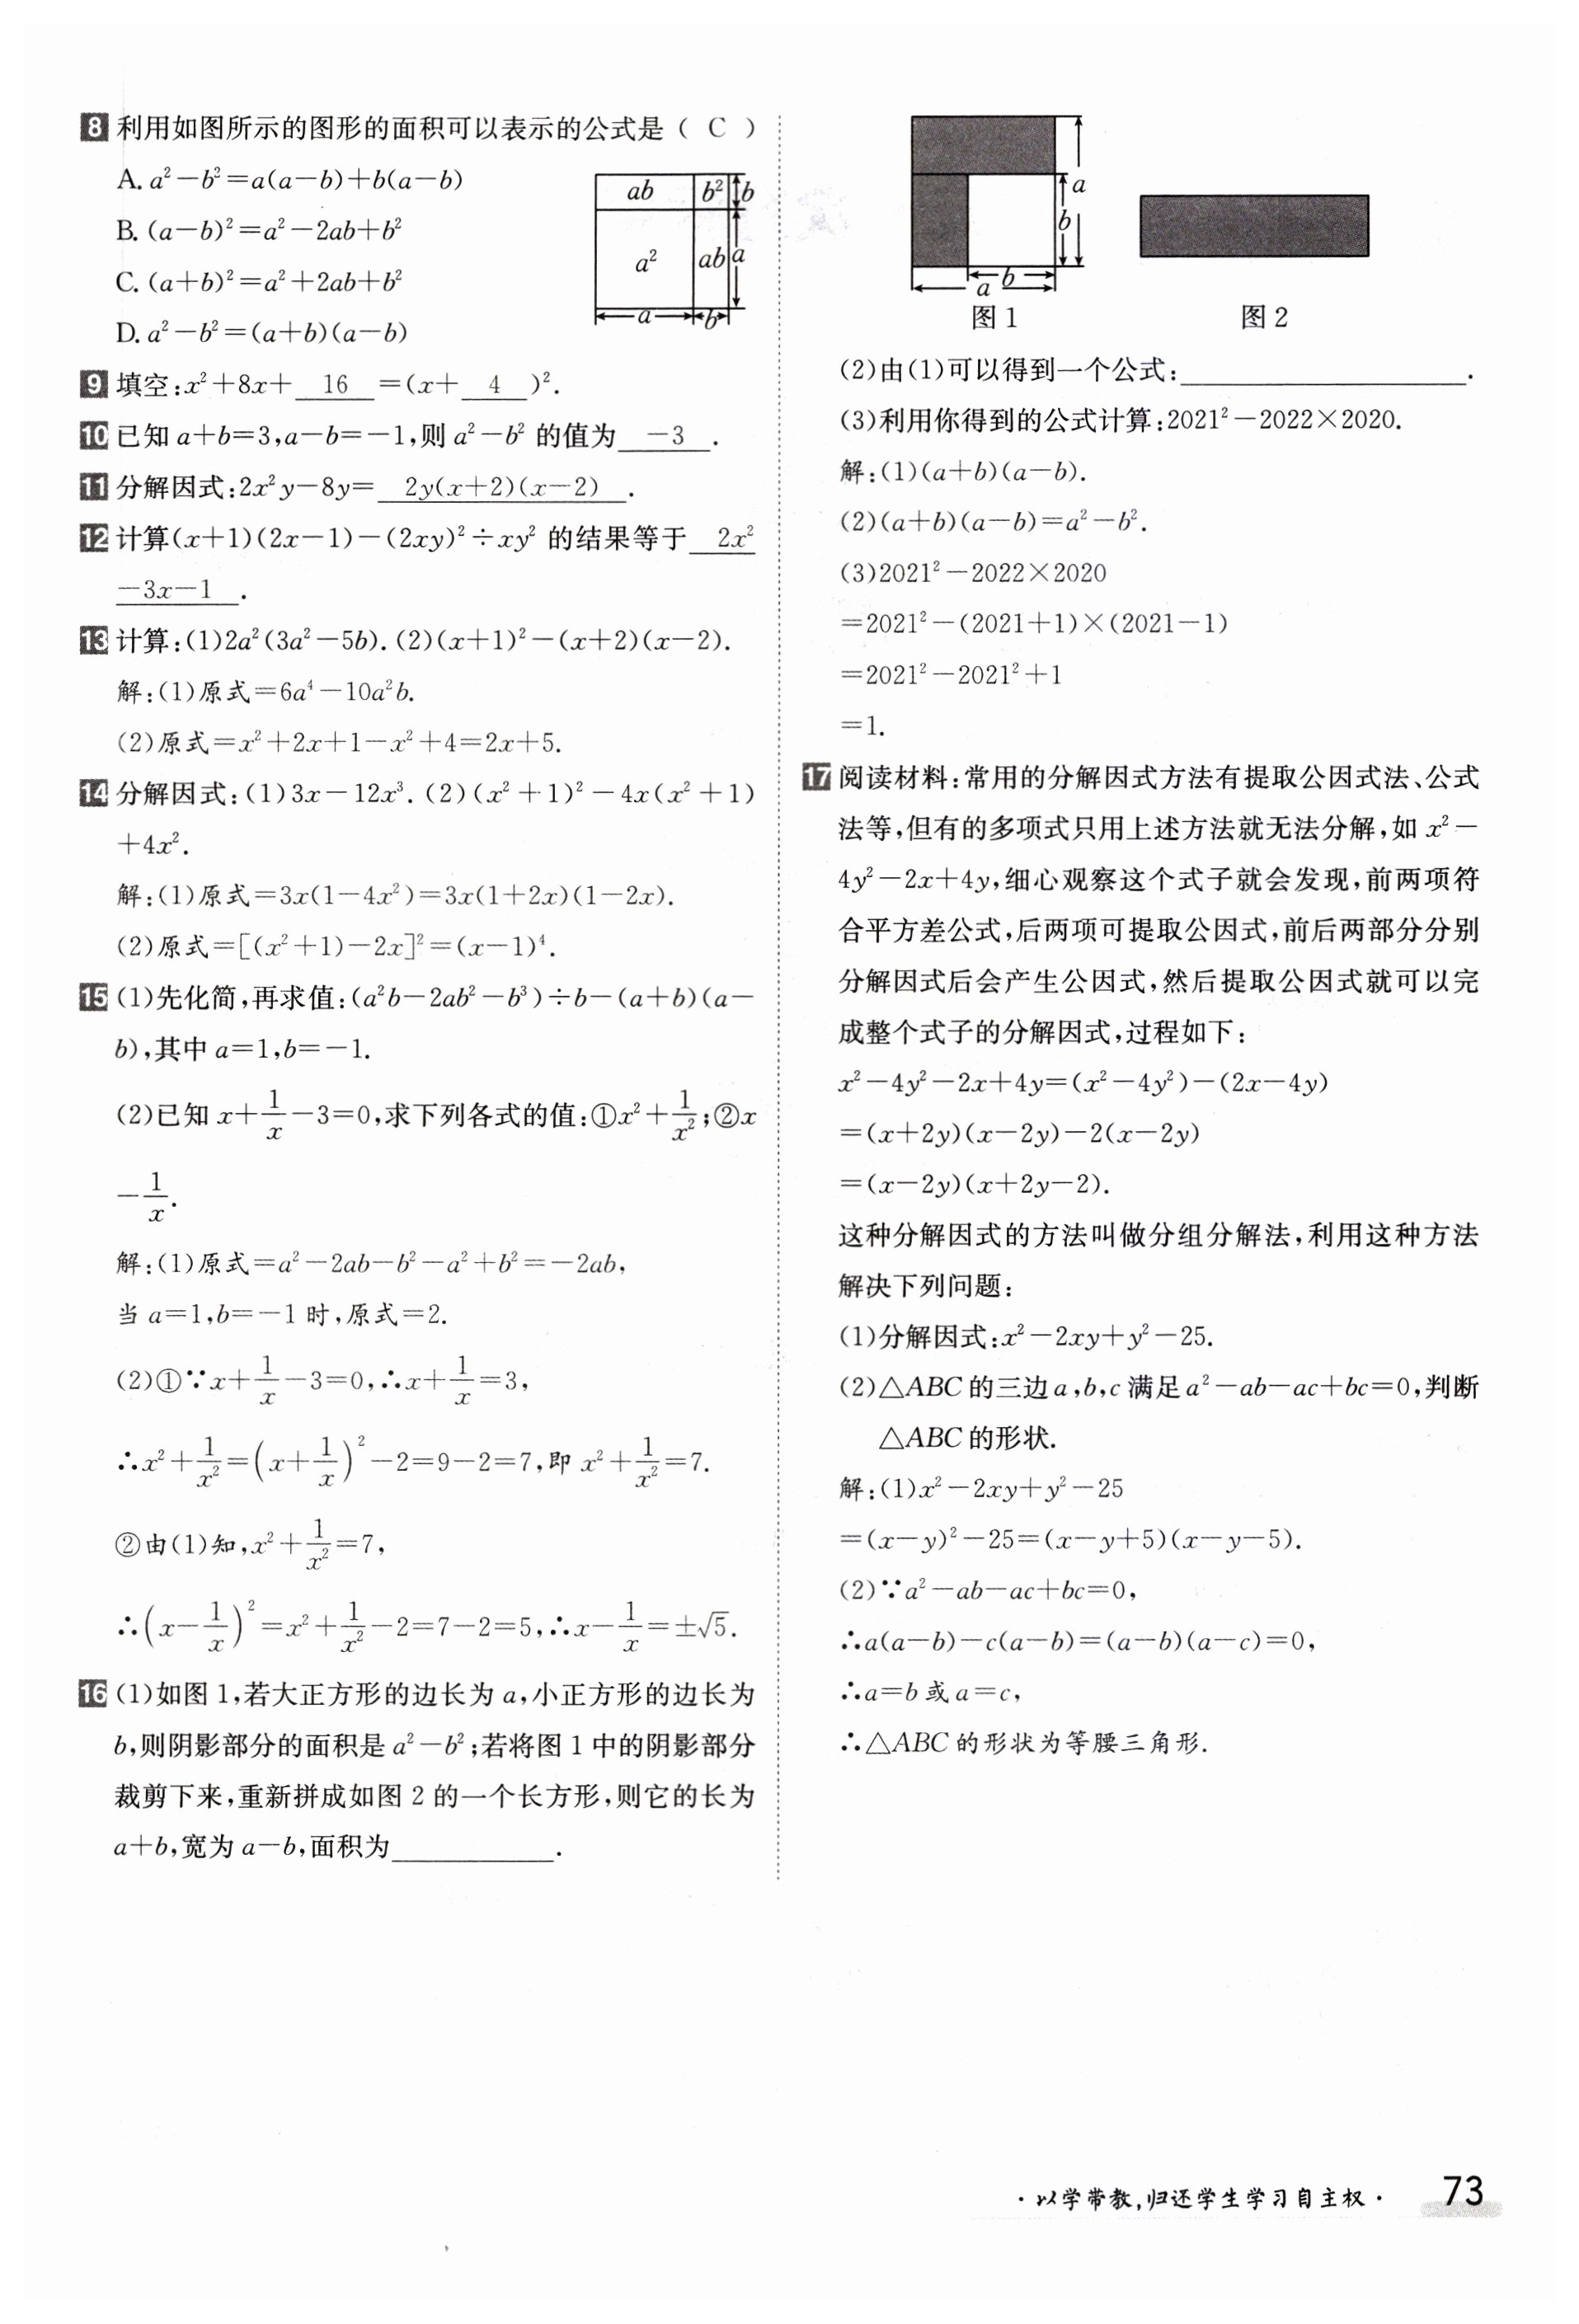 8 利用如图所示的图形的面积可以表示的公式是( C )
A. a²-b²=a(a-b)+b(a-b)
B. (a-b)²=a²-2ab+b²
C. (a+b)²=a²+2ab+b²
D. a²-b²=(a+b)(a-b)
ab b² b
a² ab a
a b
9 填空:x²+8x+ 16 =(x+ 4 )².
10 已知 a+b=3,a-b=-1,则 a²-b² 的值为 -3 .
11 分解因式:2x²y-8y= 2y(x+2)(x-2) .
12 计算(x+1)(2x-1)-(2xy)²÷xy² 的结果等于 2x²
-3x-1 .
13 计算:(1)2a²(3a²-5b). (2)(x+1)²-(x+2)(x-2).
解:(1)原式=6a⁴-10a²b.
(2)原式=x²+2x+1-x²+4=2x+5.
14 分解因式:(1)3x-12x³. (2)(x²+1)²-4x(x²+1)
+4x².
解:(1)原式=3x(1-4x²)=3x(1+2x)(1-2x).
(2)原式=[(x²+1)-2x]²=(x-1)⁴.
15 (1)先化简,再求值:(a²b-2ab²-b³)÷b-(a+b)(a-
b),其中 a=1,b=-1.
(2)已知 x+1/x-3=0,求下列各式的值:①x²+1/x²;②x
-1/x.
解:(1)原式=a²-2ab-b²-a²+b²=-2ab,
当 a=1,b=-1 时,原式=2.
(2)①∵x+1/x-3=0,∴x+1/x=3,
∴x²+1/x²=(x+1/x)²-2=9-2=7,即 x²+1/x²=7.
②由(1)知,x²+1/x²=7,
∴(x-1/x)²=x²+1/x²-2=7-2=5,∴x-1/x=±√5.
16 (1)如图 1,若大正方形的边长为 a,小正方形的边长为
b,则阴影部分的面积是 a²-b²;若将图 1 中的阴影部分
裁剪下来,重新拼成如图 2 的一个长方形,则它的长为
a+b,宽为 a-b,面积为____________.
a
b
b
a
图 1 图 2
(2)由(1)可以得到一个公式:____________________.
(3)利用你得到的公式计算:2021²-2022×2020.
解:(1)(a+b)(a-b).
(2)(a+b)(a-b)=a²-b².
(3)2021²-2022×2020
=2021²-(2021+1)×(2021-1)
=2021²-2021²+1
=1.
17 阅读材料:常用的分解因式方法有提取公因式法、公式
法等,但有的多项式只用上述方法就无法分解,如 x²-
4y²-2x+4y,细心观察这个式子就会发现,前两项符
合平方差公式,后两项可提取公因式,前后两部分分别
分解因式后会产生公因式,然后提取公因式就可以完
成整个式子的分解因式,过程如下:
x²-4y²-2x+4y=(x²-4y²)-(2x-4y)
=(x+2y)(x-2y)-2(x-2y)
=(x-2y)(x+2y-2).
这种分解因式的方法叫做分组分解法,利用这种方法
解决下列问题:
(1)分解因式:x²-2xy+y²-25.
(2)△ABC 的三边 a,b,c 满足 a²-ab-ac+bc=0,判断
△ABC 的形状.
解:(1)x²-2xy+y²-25
=(x-y)²-25=(x-y+5)(x-y-5).
(2)∵a²-ab-ac+bc=0,
∴a(a-b)-c(a-b)=(a-b)(a-c)=0,
∴a=b 或 a=c,
∴△ABC 的形状为等腰三角形.
·以学带教,归还学生学习自主权· 73